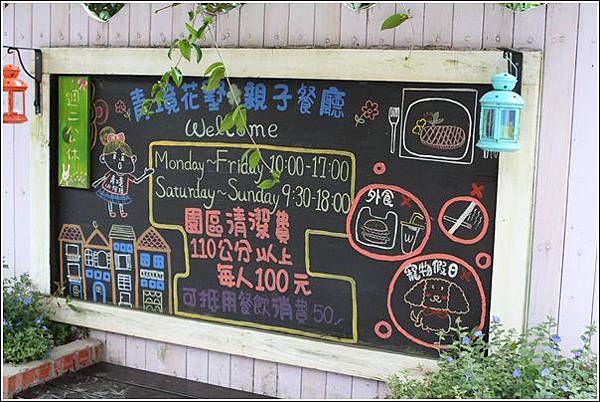 青境花墅親子餐廳
Welcome
週二公休
Monday~Friday 10:00-17:00
Saturday~Sunday 9:30-18:00
園區清潔費
110公分以上
每人100元
可抵用餐飲消費50.
外食
寵物假日